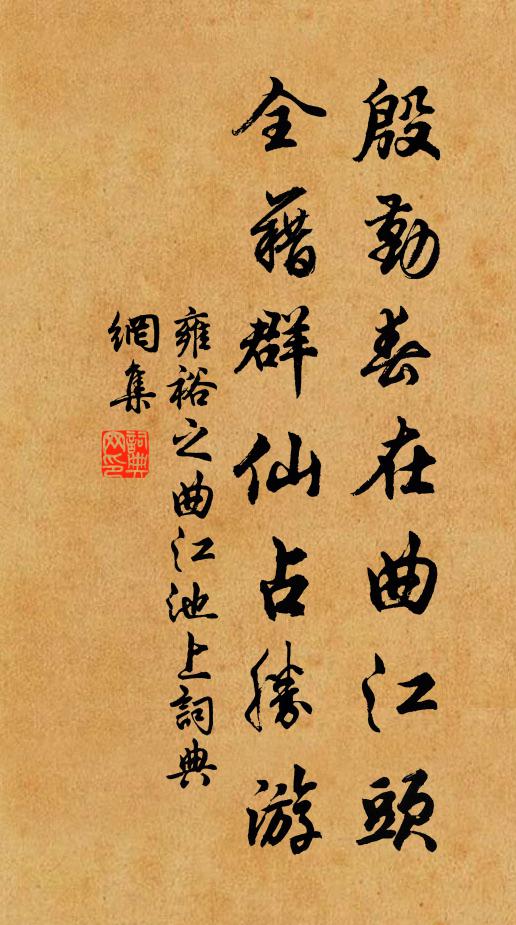 殷勤春在曲江頭
全藉群仙占勝游
雍裕之曲江池上詞典
網集
詞典
网印